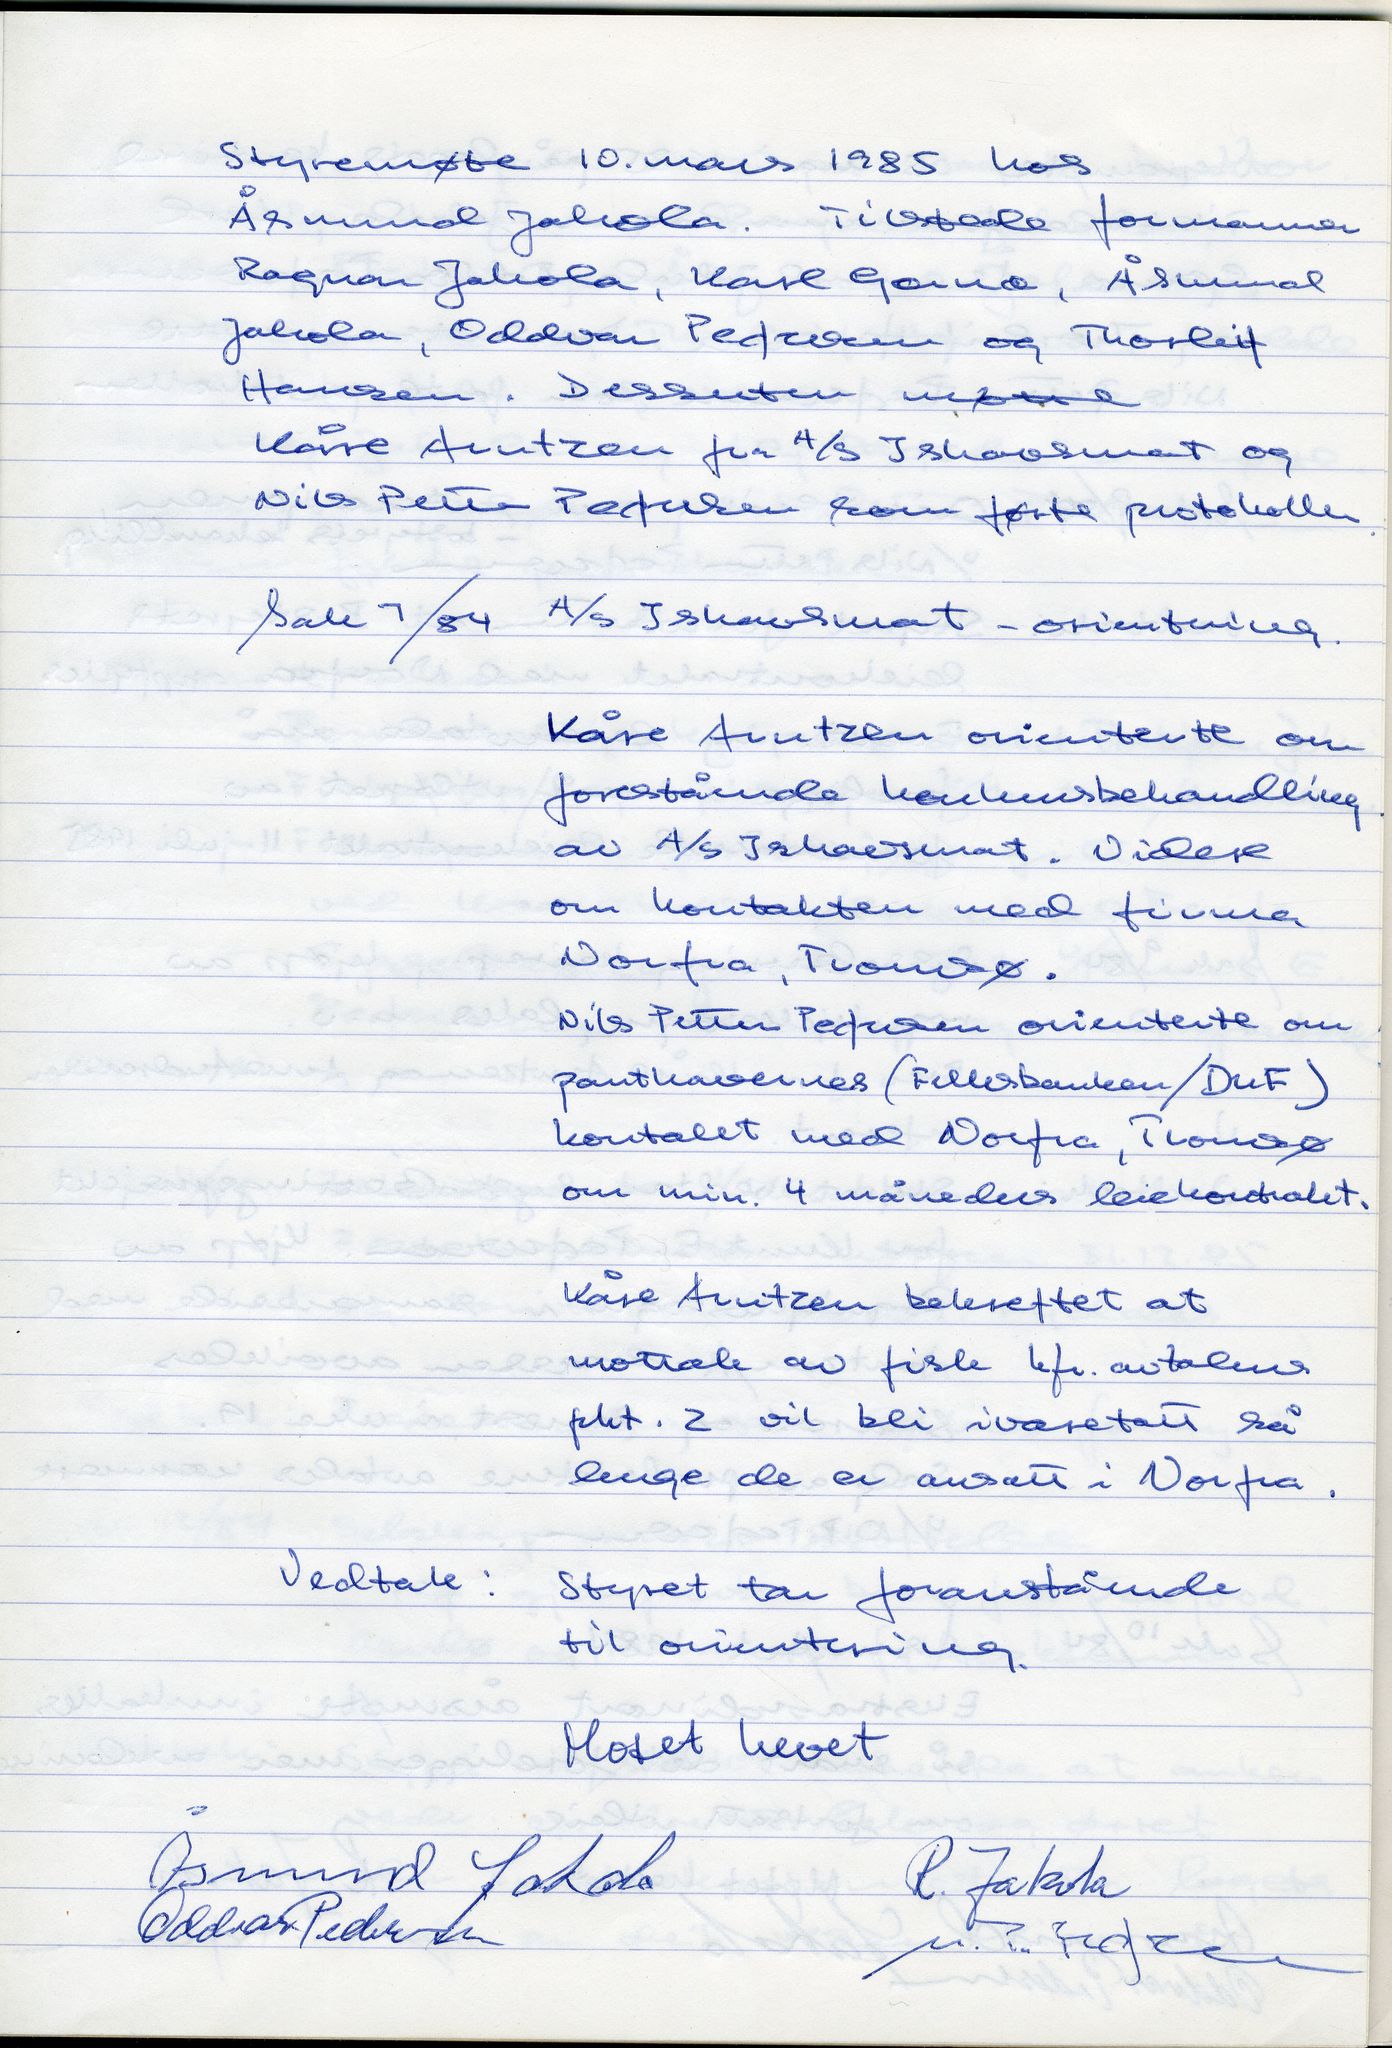 Styremøte 10. mars 1985 hos
Åsmund Jakola. Tilstede formannen
Ragnar Jakola, Karl Gamo, Åsmund
Jakola, Oddvar Pedersen og Thorleif
Hansen. Dessuten møtte
Kåre Arntzen fra A/S Ishavsmat og
Nils Petter Pedersen som førte protokollen.
Sak 7/84 A/S Ishavsmat - orientering.
Kåre Arntzen orienterte om
forestående konkursbehandling
av A/S Ishavsmat. Videre
om kontakten med firma
Norfra, Tromsø.
Nils Petter Pedersen orienterte om
panthavernes (Fellesbanken/DUF)
kontakt med Norfra, Tromsø
om min. 4 måneders leiekontrakt.
Kåre Arntzen bekreftet at
mottak av fisk kfr. avtalens
pkt. 2 vil bli ivaretatt så
lenge de er ansatt i Norfra.
Vedtak: Styret tar foranstående
til orientering.
Møtet hevet
Åsmund Jakola R. Jakola
Oddvar Pedersen N. P. Pedersen